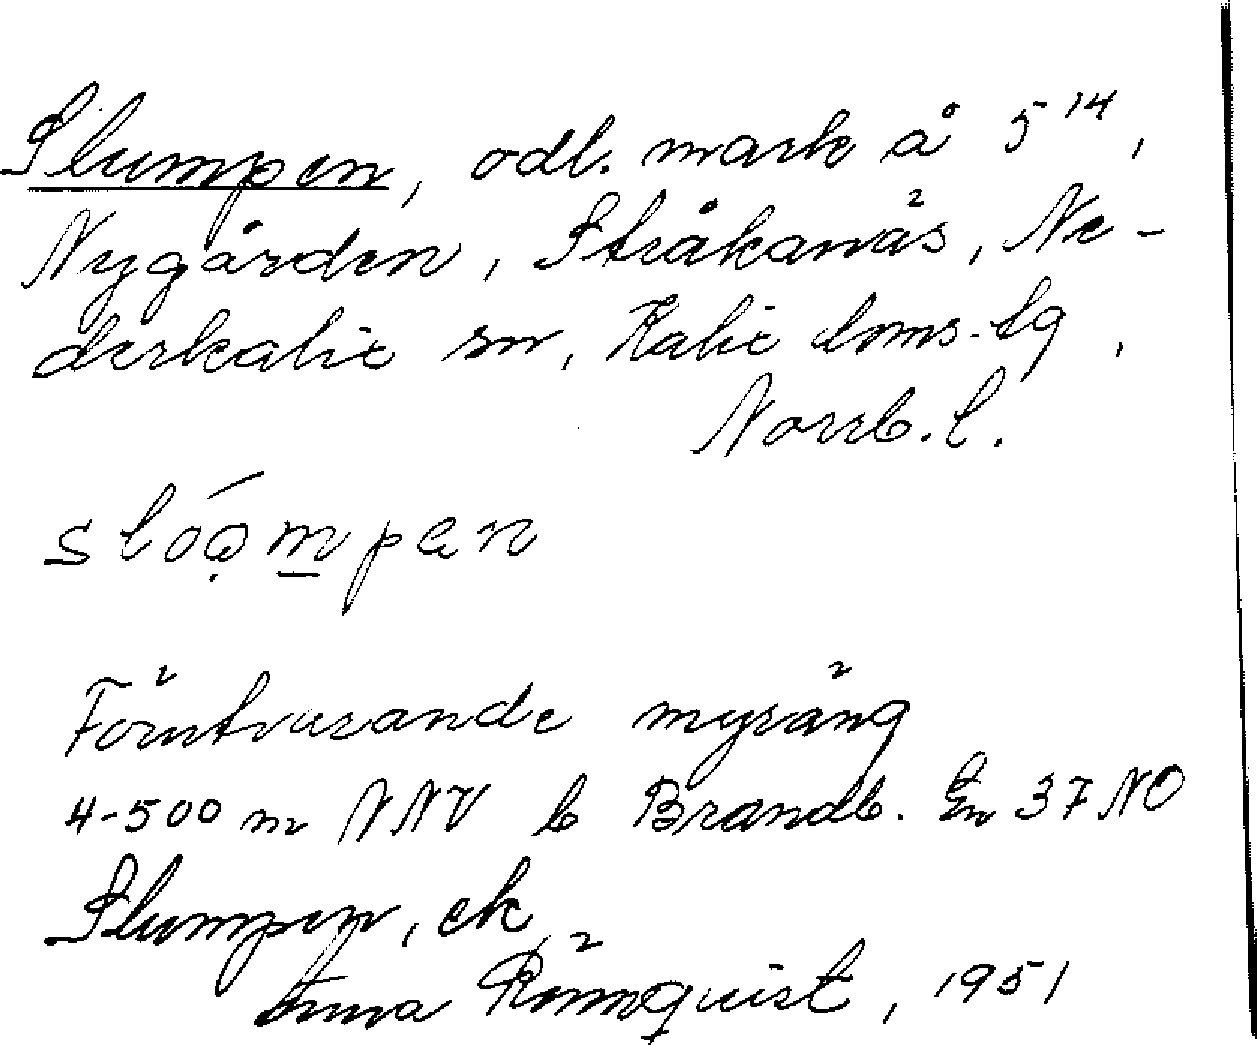 Slumpen, odl. mark å 5¹⁴,
Nygården, Stråkanäs, Ne-
derkalix sn, Kalix
Norrb. l.
slóompen
Förutvarande myräng
4-500 m NNV b Brandb. En 37 NO
Slumpen, ek
Anna Rönnquist, 1951